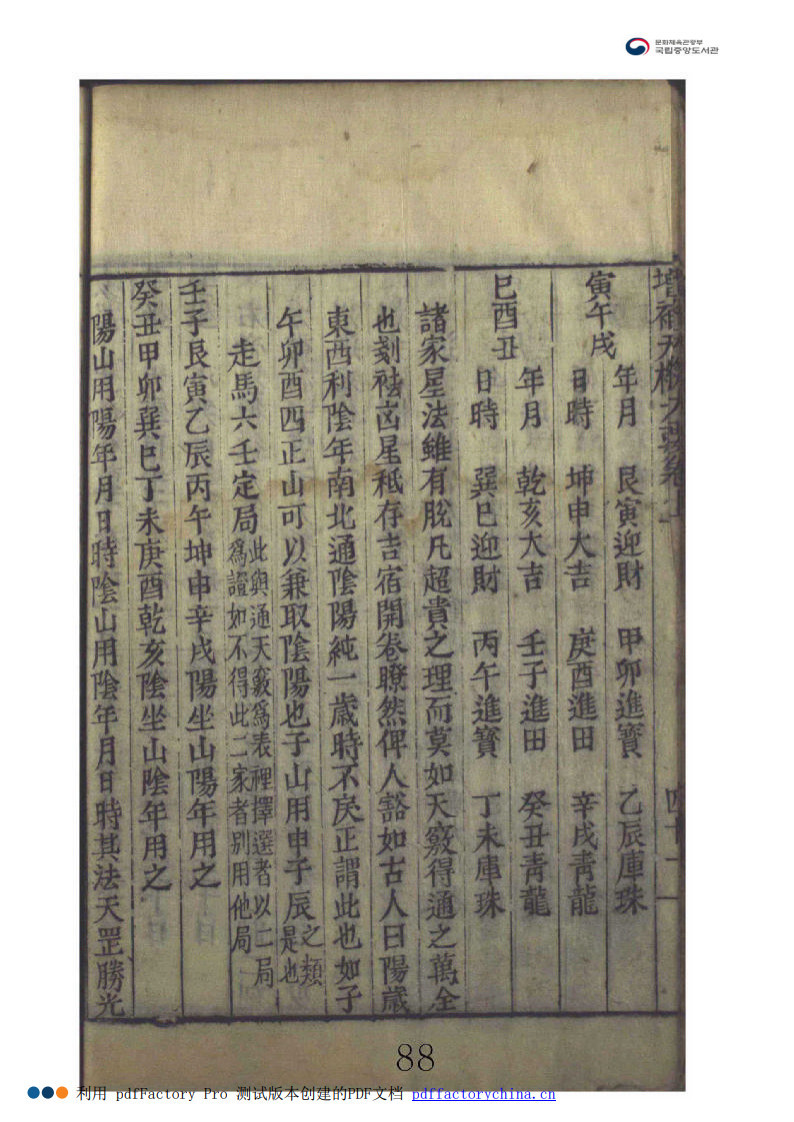 문화체육관광부
국립중앙도서관
增補天機大要卷上 四十二
寅午戌
年月 艮寅迎財 甲卯進寶 乙辰庫珠
日時 坤申大吉 庚酉進田 辛戌靑龍
巳酉丑
年月 乾亥大吉 壬子進田 癸丑靑龍
日時 巽巳迎財 丙午進寶 丁未庫珠
諸家星法雖有脫凡超貴之理而莫如天竅得通之萬全
也刻祛凶星秪存吉宿開卷瞭然俾人豁如古人曰陽歲
東西利陰年南北通陰陽純一歲時不戾正謂此也如子
午卯酉四正山可以兼取陰陽也子山用申子辰之類是也
走馬六壬定局此與通天竅爲表裡擇選者以二局爲證如不得此二家者別用他局
壬子艮寅乙辰丙午坤申辛戌陽坐山陽年用之
癸丑甲卯巽巳丁未庚酉乾亥陰坐山陰年用之
陽山用陽年月日時陰山用陰年月日時其法天罡勝光
88
利用 pdfFactory Pro 测试版本创建的PDF文档 pdffactorychina.cn